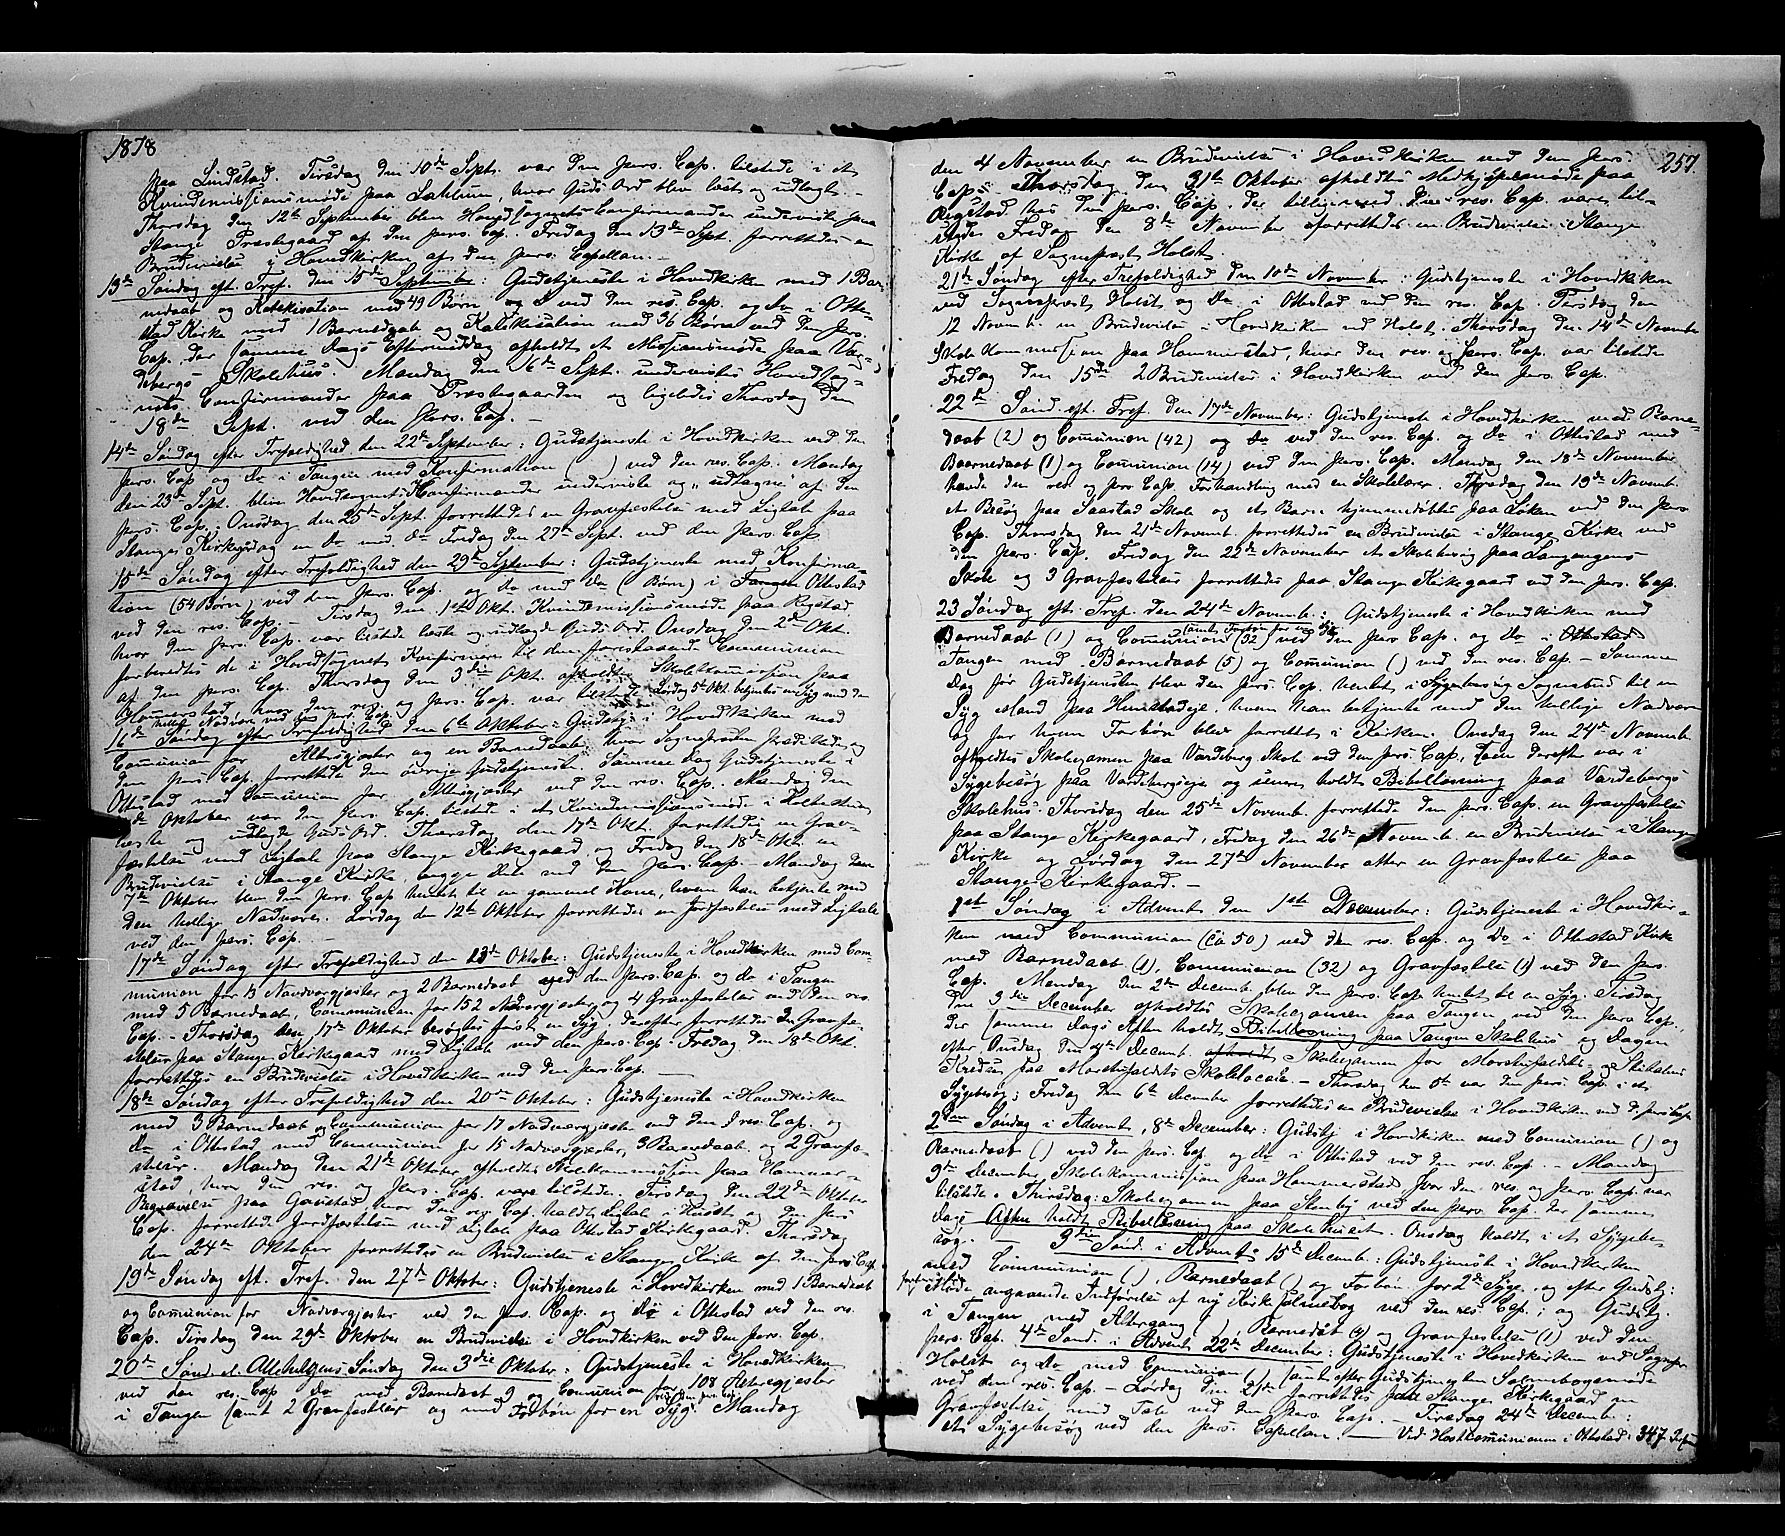 1878
paa Lindstad. Tirsdag den 10de Sept. var den pers. Cap. tilstede i et
Kvindemissionsmøde paa, hvor Guds Ord blev læst og udlagt.
Thorsdag den 12te September blev Hovedsognets Confirmander underviste paa
Stange Præstegaard af den pers. Cap. Fredag den 13de Sept. forrettedes en
Brudevielse i Hovedkirken af den pers. Capellan.
13de Søndag eft. Tref. den 15de September: Gudstjeneste i Hovedkirken med 1 Bar-
nedaab og Katekisation med 49 Børn, og ved den res. Cap. og do i Otte-
stad Kirke med 1 Barnedaab og Katekisation med 36 Børn ved den pers.
Cap. der samme Dags Eftermiddag afholdt et Missionsmøde paa Var-
debergs Skolehus. Mandag den 16de Sept. undervistes Hovedsog-
nets Confirmander paa Præstegaarden og ligeledes Thorsdag den
18de Sept. ved den pers. Cap.
14de Søndag efter Trefoldighed den 22de September: Gudstjeneste i Hovedkirken ved den
pers. Cap og do i Tangen med Konfirmation ( ) ved den res. Cap. Mandag
den 23de Sept. blev Hovedsognets Konfirmander underviste og "udtagne" af den
pers. Cap. Onsdag den 25de Sept. forrettedes en Gravfæstelse med Ligtale paa
Stange Kirkegaard og en do med do Fredag den 27de Sept. ved den pers. Cap.
15de Søndag efter Trefoldighed den 29de September: Gudstjeneste med Konfirma-
tion (54 Børn) ved den pers. Cap. og do med do ( Børn) i Tangen Ottestad
ved den res. Cap. – Tirsdag den 1ste Okt. Kvindemissionsmøde paa Rigstad
hvor den pers. Cap. var tilstede læste og udlagde Guds Ord. Onsdag den 2den Okt.
forberedtes de i Hovedsognet Konfirmerede til den forestaaende Communion
af den pers. Cap. Thorsdag den 3die Okt. afholdtes Skolekommission paa
Hommerstad, hvor den res. og pers. Cap. var tilstede. Lørdag 5te Okt. betjentes en Syg med den
hellige Nadvere ved den pers. Cap.
16de Søndag efter Trefoldighed den 6te Oktober: Gudstj. i Hovedkirken med
Communion for Altergjester og en Barnedaab, hvor Sognepresten prædikede, og
den pers. Cap. forrettede den øvrige Gudstjeneste. Samme Dag Gudstjeneste i
Ottestad med Communion for Altergjester ved den res. Cap. Mandag den
Oktober var den pers. Cap. tilstede i et Kvindemissionsmøde i
læste og udlagde Guds Ord. Thorsdag den 17de Okt. forrettedes en Grav-
fæstelse med Ligtale paa Stange Kirkegaard og Fredag den 18de Okt. en
Brudevielse i Stange Kirke, begge Dele ved den pers. Cap. – Mandag den
7de Oktober blev den pers. Cap. hentet til en gammel Kone, hvem han betjente med
den hellige Nadvere. Lørdag den 12te Oktober forrettedes en Jordfæstelse med Ligtale
ved den pers. Cap. –
17de Søndag efter Trefoldighed den 13de Oktober: Gudstjeneste i Hovedkirken med Com-
munion for 13 Nadvergjester og 2 Barnedaab ved den pers. Cap. og do i Tangen
med 5 Barnedaab, Communion for 152 Nadvergjester og 4 Gravfæstelser ved den res.
Cap. – Thorsdag den 17de Oktober besøgtes først en Syg, derefter forrettedes en Gravfæ-
stelse paa Stange Kirkegaard med Ligtale ved den pers. Cap. Fredag den 18de Okt.
forrettedes en Brudevielse i Hovedkirken ved den pers. Cap. –
18de Søndag efter Trefoldighed den 20de Oktober: Gudstjeneste i Hovedkirken
med 3 Barnedaab og Communion for 17 Nadvergjester ved den res. Cap. og
do i Ottestad med Communion for 15 Nadvergjester, 3 Barnedaab og 2 Gravfæ-
stelser. Mandag den 21de Oktober afholdtes Skolekommission paa Hommer-
stad, hvor den res. og pers. Cap. vare tilstede. Tirsdag den 22de Oktober
Begravelse paa Gaustad, hvor den res. Cap. holdt Ligtale i Huset og den pers.
Cap. forrettede Jordfæstelsen med Ligtale paa Ottestad Kirkegaard. Thorsdag
den 24de Oktober forrettedes en Brudevielse i Stange Kirke af den pers. Cap.
19de Søndag eft. Tref. den 27de Oktober: Gudstjeneste i Hovedkirken med 1 Barnedaab
og Communion for Nadvergjester ved den pers. Cap. og do i Ottestad ved den res.
Cap. Tirsdag den 29de Oktober en Brudevielse i Hovedkirken ved den pers. Cap.
20de Sønd. el. Allehelgens Søndag den 3die Oktober: Gudstjeneste i Hovedkirken
ved den res. Cap. do med Barnedaab 9 og Communion for 108 Altergjester
i Tangen samt 2 Gravfæstelser og med Forbøn for en Syg. Mandag
257.
den 4 November en Brudevielse i Hovedkirken ved den pers.
Cap. Thorsdag den 31te Oktober afholdtes paa
Rigstad hos den pers. Cap. der tilligemed den res. Cap. vare til-
stede. Fredag den 8de November forrettedes en Brudevielse i Stange
Kirke af Sogneprest Holst.
21de Søndag efter Trefoldighed den 10de November: Gudstjeneste i Hovedkirken
ved Sogneprest Holst og do i Ottestad ved den res. Cap. Tirsdag den
12 Novemb. en Brudevielse i Hovedkirken ved Holst. Thorsdag den 14de November
Skolekommission paa Hommerstad, hvor den res. og pers. Cap. var tilstede
Fredag den 15de 2 Brudevielser i Hovedkirken ved den pers. Cap.
22de Sønd. eft. Tref. den 17de November: Gudstjeneste i Hovedkirken med Barne-
daab (2) og Communion (42) og do ved den res. Cap. og do i Ottestad med
Barnedaab (1) og Communion (14) ved den pers. Cap. Mandag den 18de November
havde den res. og pers. Cap. Forhandling med en Skolelærer. Tirsdag den 19de Novemb.
et Besøg paa Saastad Skole og et Barn hjemmedøbtes paa Løken ved den pers.
Cap. Thorsdag den 21de Novemb. forrettedes en Brudevielse i Stange Kirke ved
den pers. Cap. Fredag den 22de November et Skolebesøg paa Langangens
Skole og 3 Gravfæstelser forrettedes paa Stange Kirkegaard ved den pers. Cap.
23 Søndag eft. Tref. den 24de Novemb.: Gudstjeneste i Hovedkirken med
Barnedaab (1) og Communion (32) (samt Forbøn for en Syg) ved den pers. Cap. og do i Ottestad
Tangen med Barnedaab (5) og Communion ( ) ved den res. Cap. – Samme
Dag før Gudstjenesten blev den pers. Cap. hentet i Sygebesøg Sognebud til en
Syg Mand paa, hvem han betjente med den hellige Nadvere
og for hvem Forbøn blev forrettet i Kirken. Onsdag den 24de Novemb.
afholdtes Skoleexamen paa Vardeberg Skole ved den pers. Cap., som derefter var i
Sygebesøg paa Vardebergseje og senere holdt Bibellæsning paa Vardebergs
Skolehus. Thorsdag den 25de Novemb. forrettede den pers. Cap. en Gravfæstelse
paa Stange Kirkegaard, Fredag den 26de Novemb. en Brudevielse i Stange
Kirke og Lørdag den 27de November atter en Gravfæstelse paa
Stange Kirkegaard. –
1ste Søndag i Advent den 1ste December: Gudstjeneste i Hovedkir-
ken med Communion (ca 50) ved den res. Cap. og do i Ottestad Kirke
med Barnedaab (1), Communion (32) og Gravfæstelse (1) ved den pers.
Cap. Mandag den 2den Decemb. blev den pers. Cap. hentet til en Syg. Tirsdag
den 3die December afholdtes Skoleexamen paa Tangen ved den pers. Cap.,
der samme Dags Aften holdt Bibellæsning paa Tangen Skolehus og Dagen
efter Onsdag den 4de Decemb. afholdt Skoleexamen for Morskufaldets- og
Kredse paa Morskufaldets Skolelocale. – Thorsdag den 5te var den pers. Cap. i et
Sygebesøg; Fredag den 6te December forrettedes en Brudevielse i Hovedkirken ved d. pers. Cap.
2den Søndag i Advent, 8de December: Gudstj. i Hovedkirken med Communion ( ) og
Barnedaab ( ) ved den pers. Cap. og do i Ottestad ved den res. Cap. – Mandag
9de December Skolekommission paa Hommerstad hvor den res. og pers. Cap. var
tilstede. Thirsdag: Skoleexamen paa Stenby ved den pers. Cap. der samme
Dags Aften holdt Bibellæsning paa Skolehuset. Onsdag holdt i et Sygebe-
søg. – 3die Sønd. i Advent 15de Decemb.: Gudstjeneste i Hovedkirken
med Communion ( ), Barnedaab ( ) og Forbøn for 2de Syge, og efter Gudstj.:
Møde angaaende Indførelse af ny Kirkesalmebog ved den res. Cap.; og Gudstj.
i Tangen med Altergang ( ), Barnedaab (4) og Gravfæstelse (1) ved den
pers. Cap. 4de Sønd. i Advent 22de December: Gudstjeneste i Hovedkirken ved Sognepr.
Holst og do med Communion samt efter Gudstjenesten Salmebogsmøde
ved den res. Cap. – Lørdag den 21de forrettedes paa Stange Kirkegaard en
Gravfæstelse med Tale ved den pers. Cap. – Tirsdag 24de Decemb.:
et Sygebesøg ved den pers. Capellan. – Ved Høstkommunionen i Ottestad: 347